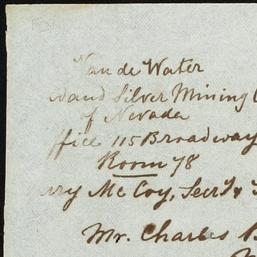 Van de Water
and Silver Mining
of Nevada
ffice 115 Broadway
Room 78
ry McCoy, Secr'y &
Mr. Charles